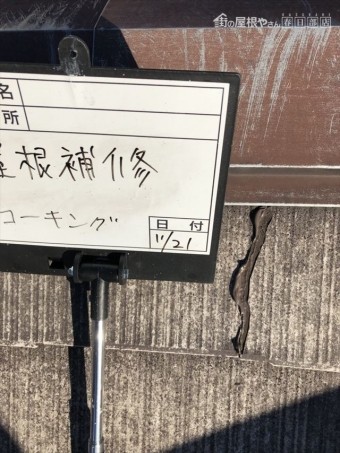 街の屋根やさん 春日部店
KASUKABE
名
所
屋根補修
コーキング
日付
11/21